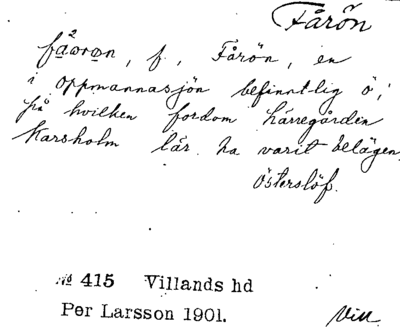 Fårön
fåorọn, f, Fårön, en
i Oppmannasjön befinntlig ö,
på hvilken fordom härregården
Karsholm lär ha varit belägen,
Österslöf.
№ 415 Villands hd
Per Larsson 1901.
Vill